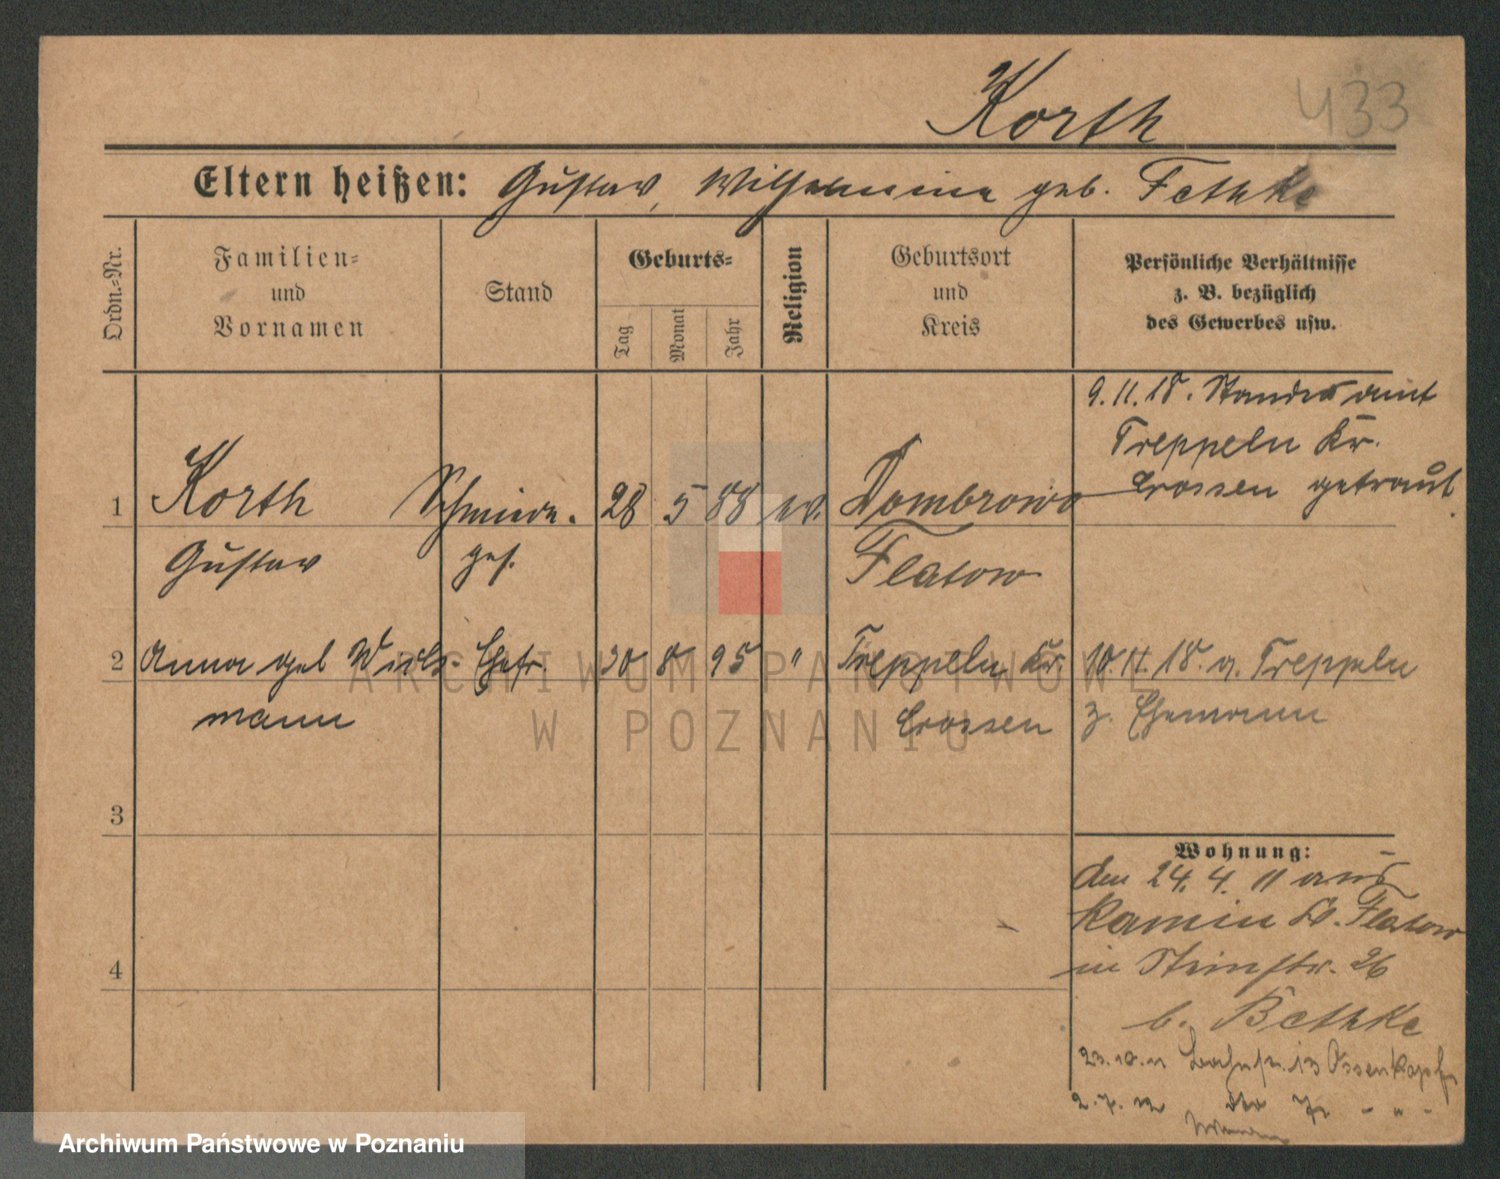 Korth
433
Eltern heißen: Gustav, Wilhelmine geb. Fethke
Ordn.-Nr.
Familien-
und
Vornamen
Stand
Geburts-
Tag
Monat
Jahr
Religion
Geburtsort
und
Kreis
Persönliche Verhältnisse
z. B. bezüglich
des Gewerbes usw.
9.11.18. Standesamt
Treppeln Kr.
Crossen getraut.
1 Korth Schmiede- 28 5 88 ev. Dombrowo
Gustav ges. Flatow
2 Anna geb Wirbs- Ehefr. 30 8 95 " Treppeln Kr. 10.11.18. a. Treppeln
mann Crossen z. Ehemann
3
Wohnung:
den 24.4.11 aus
Kamin Kr. Flatow
in Steinstr. 26
4
b. Bethke
23.10.11 13 Ossenkopf
2.7.12
ARCHIWUM PAŃSTWOWE
W POZNANIU
Archiwum Państwowe w Poznaniu